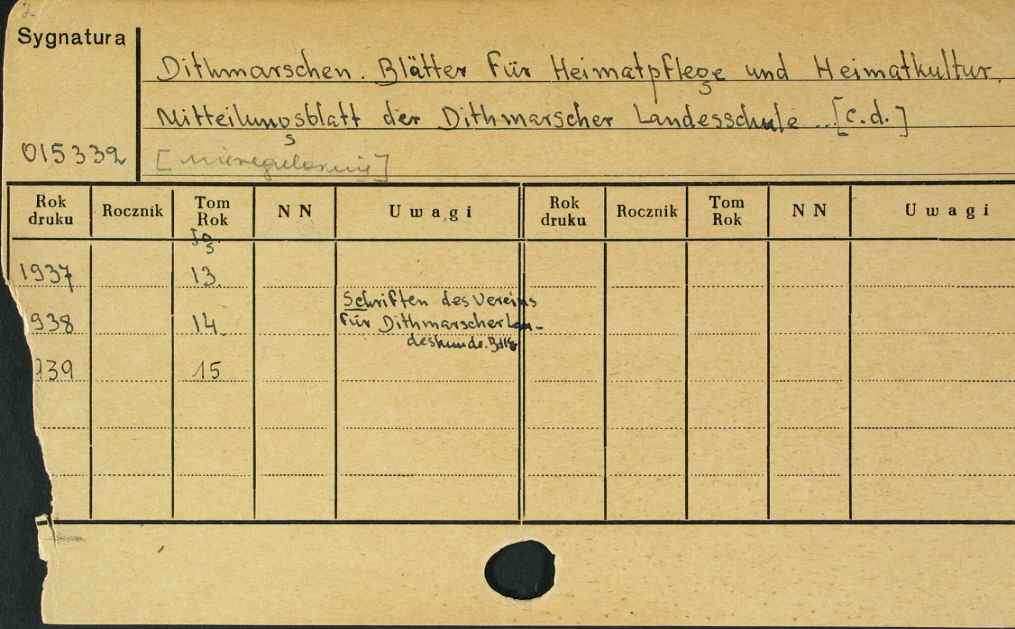 2.
Sygnatura
Dithmarschen. Blätter für Heimatpflege und Heimatkultur.
Mitteilungsblatt der Dithmarscher Landesschule ... [c.d.]
015339
[nieregularnie]
Rok druku Rocznik Tom Rok NN Uwagi Rok druku Rocznik Tom Rok NN Uwagi
Jg.
1937 13.
Schriften des Vereins
938 14. für Dithmarscher Lan-
deskunde. Bd
939 15